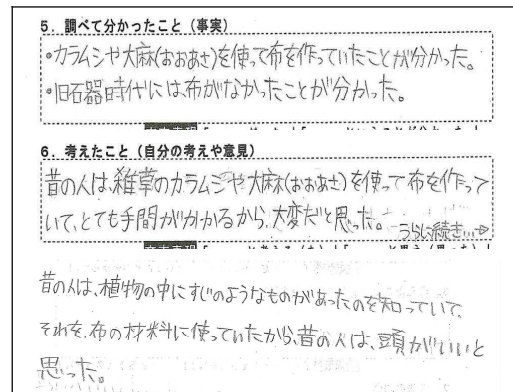 5. 調べて分かったこと（事実）
・カラムシや大麻（おおあさ）を使って布を作っていたことが分かった。
・旧石器時代には布がなかったことが分かった。
6. 考えたこと（自分の考えや意見）
昔の人は、雑草のカラムシや大麻（おおあさ）を使って布を作って
いて、とても手間がかかるから、大変だと思った。
うらに続き…⇒
昔の人は、植物の中にすじのようなものがあったのを知っていて、
それを、布の材料に使っていたから、昔の人は、頭がいいと
思った。